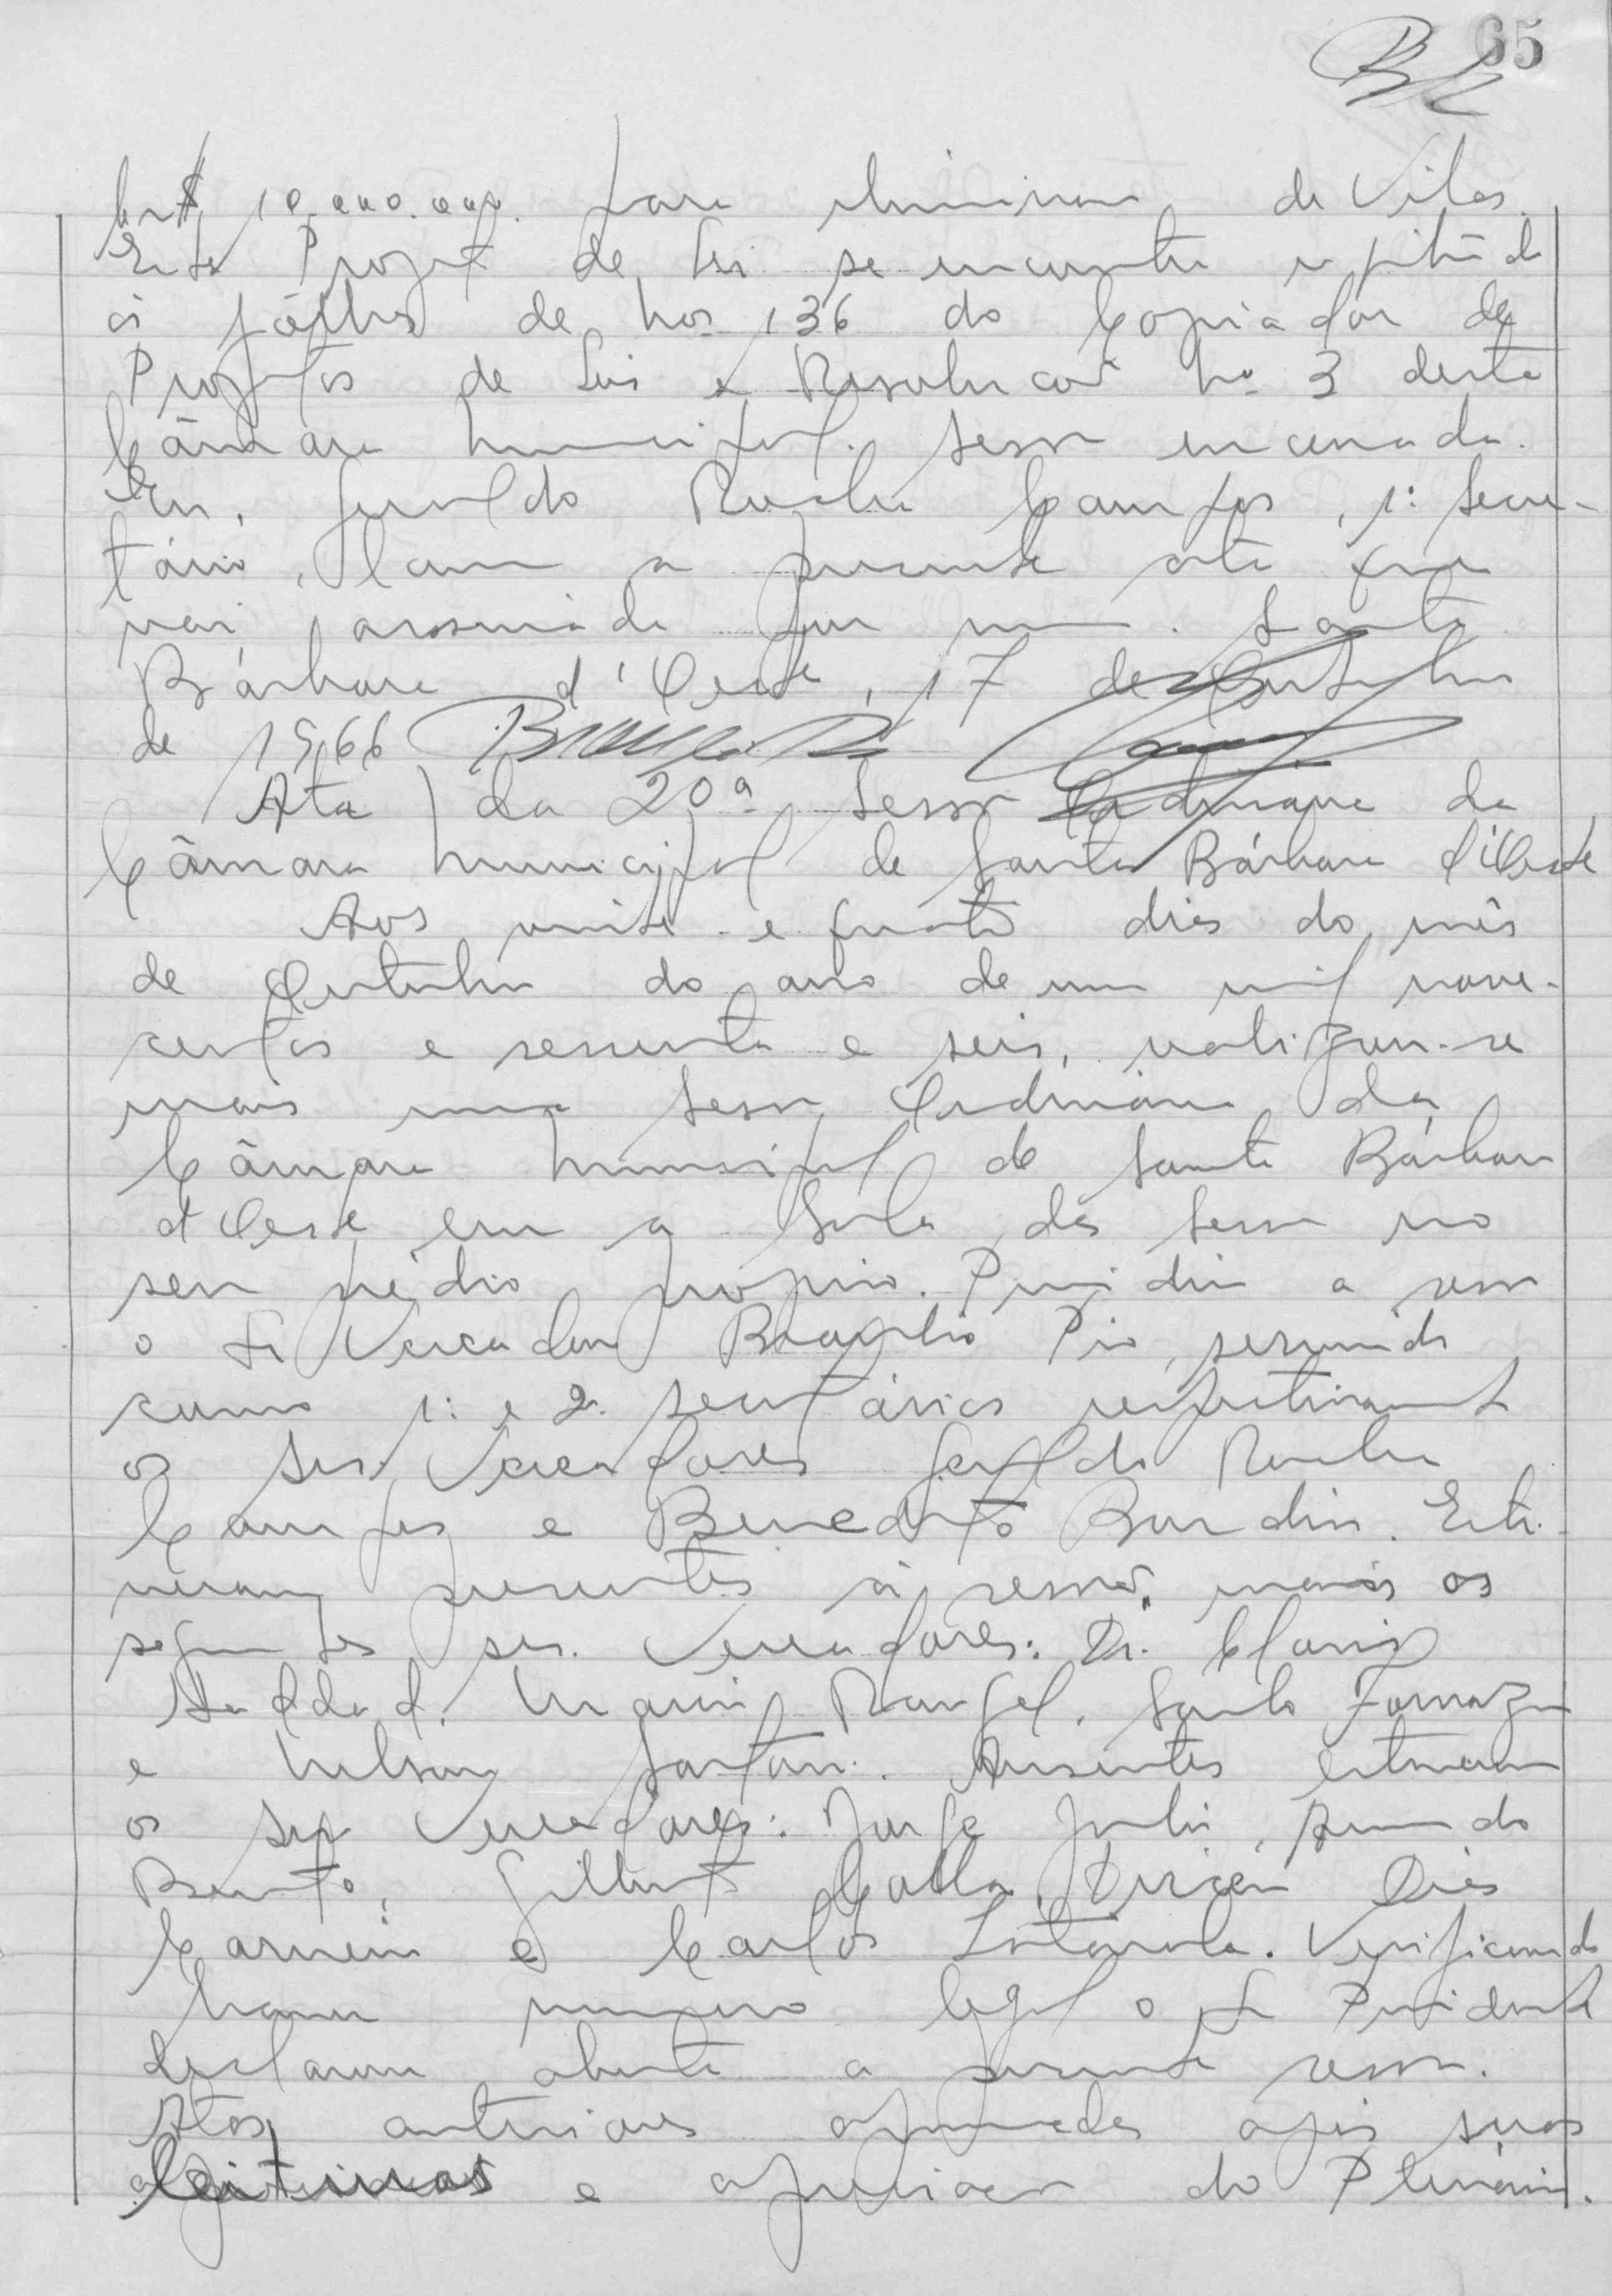 65
Cr$ 10.000.000. para iluminar de Vilas.
Este Projeto de Lei se encontra repetido
às fôlhas de nos 136 do Copiador de
Projetos de Leis e Resolucão no 3 desta
Câmara Municipal. Sessão encerrada.
Eu, Geraldo Rocha Campos, 1º Secre-
tário, lavrei a presente ata que
vai assinada por mim. Santa
Bárbara d'Oeste, 17 de Outubro
de 1966
Ata da 20ª Sessão Ordinária da
Câmara Municipal de Santa Bárbara d'Oeste
Aos vinte e quatro dias do mês
de Outubro do ano de um mil nove-
centos e sessenta e seis, realizou-se
mais uma Sessão Ordinária da
Câmara Municipal de Santa Bárbara
d'Oeste em a Sala das Sessões no
seu prédio próprio. Presidiu a sessão
o Sr Vereador Braulio Pio, servindo
como 1º e 2º Secretários respectivamente
os Srs. Vereadores Geraldo Rocha
Campos e Benedito Bordin. Esti-
veram presentes à sessão, mais os
seguintes srs. Vereadores: Dr. Clariz
Haddad, Mario Rangel, Santo Fornazin
e Nelson Sartori. Ausentes estiveram
os srs Vereadores: Jorge Julio, Armando
Bento, Gilberto Galla, Dirceu Dias
Carneiro e Carlos Lotarola. Verificando
haver numero legal o Sr Presidente
declarou aberta a presente sessão.
Atas anteriores aprovadas após suas
leituras e apreciação do Plenário.